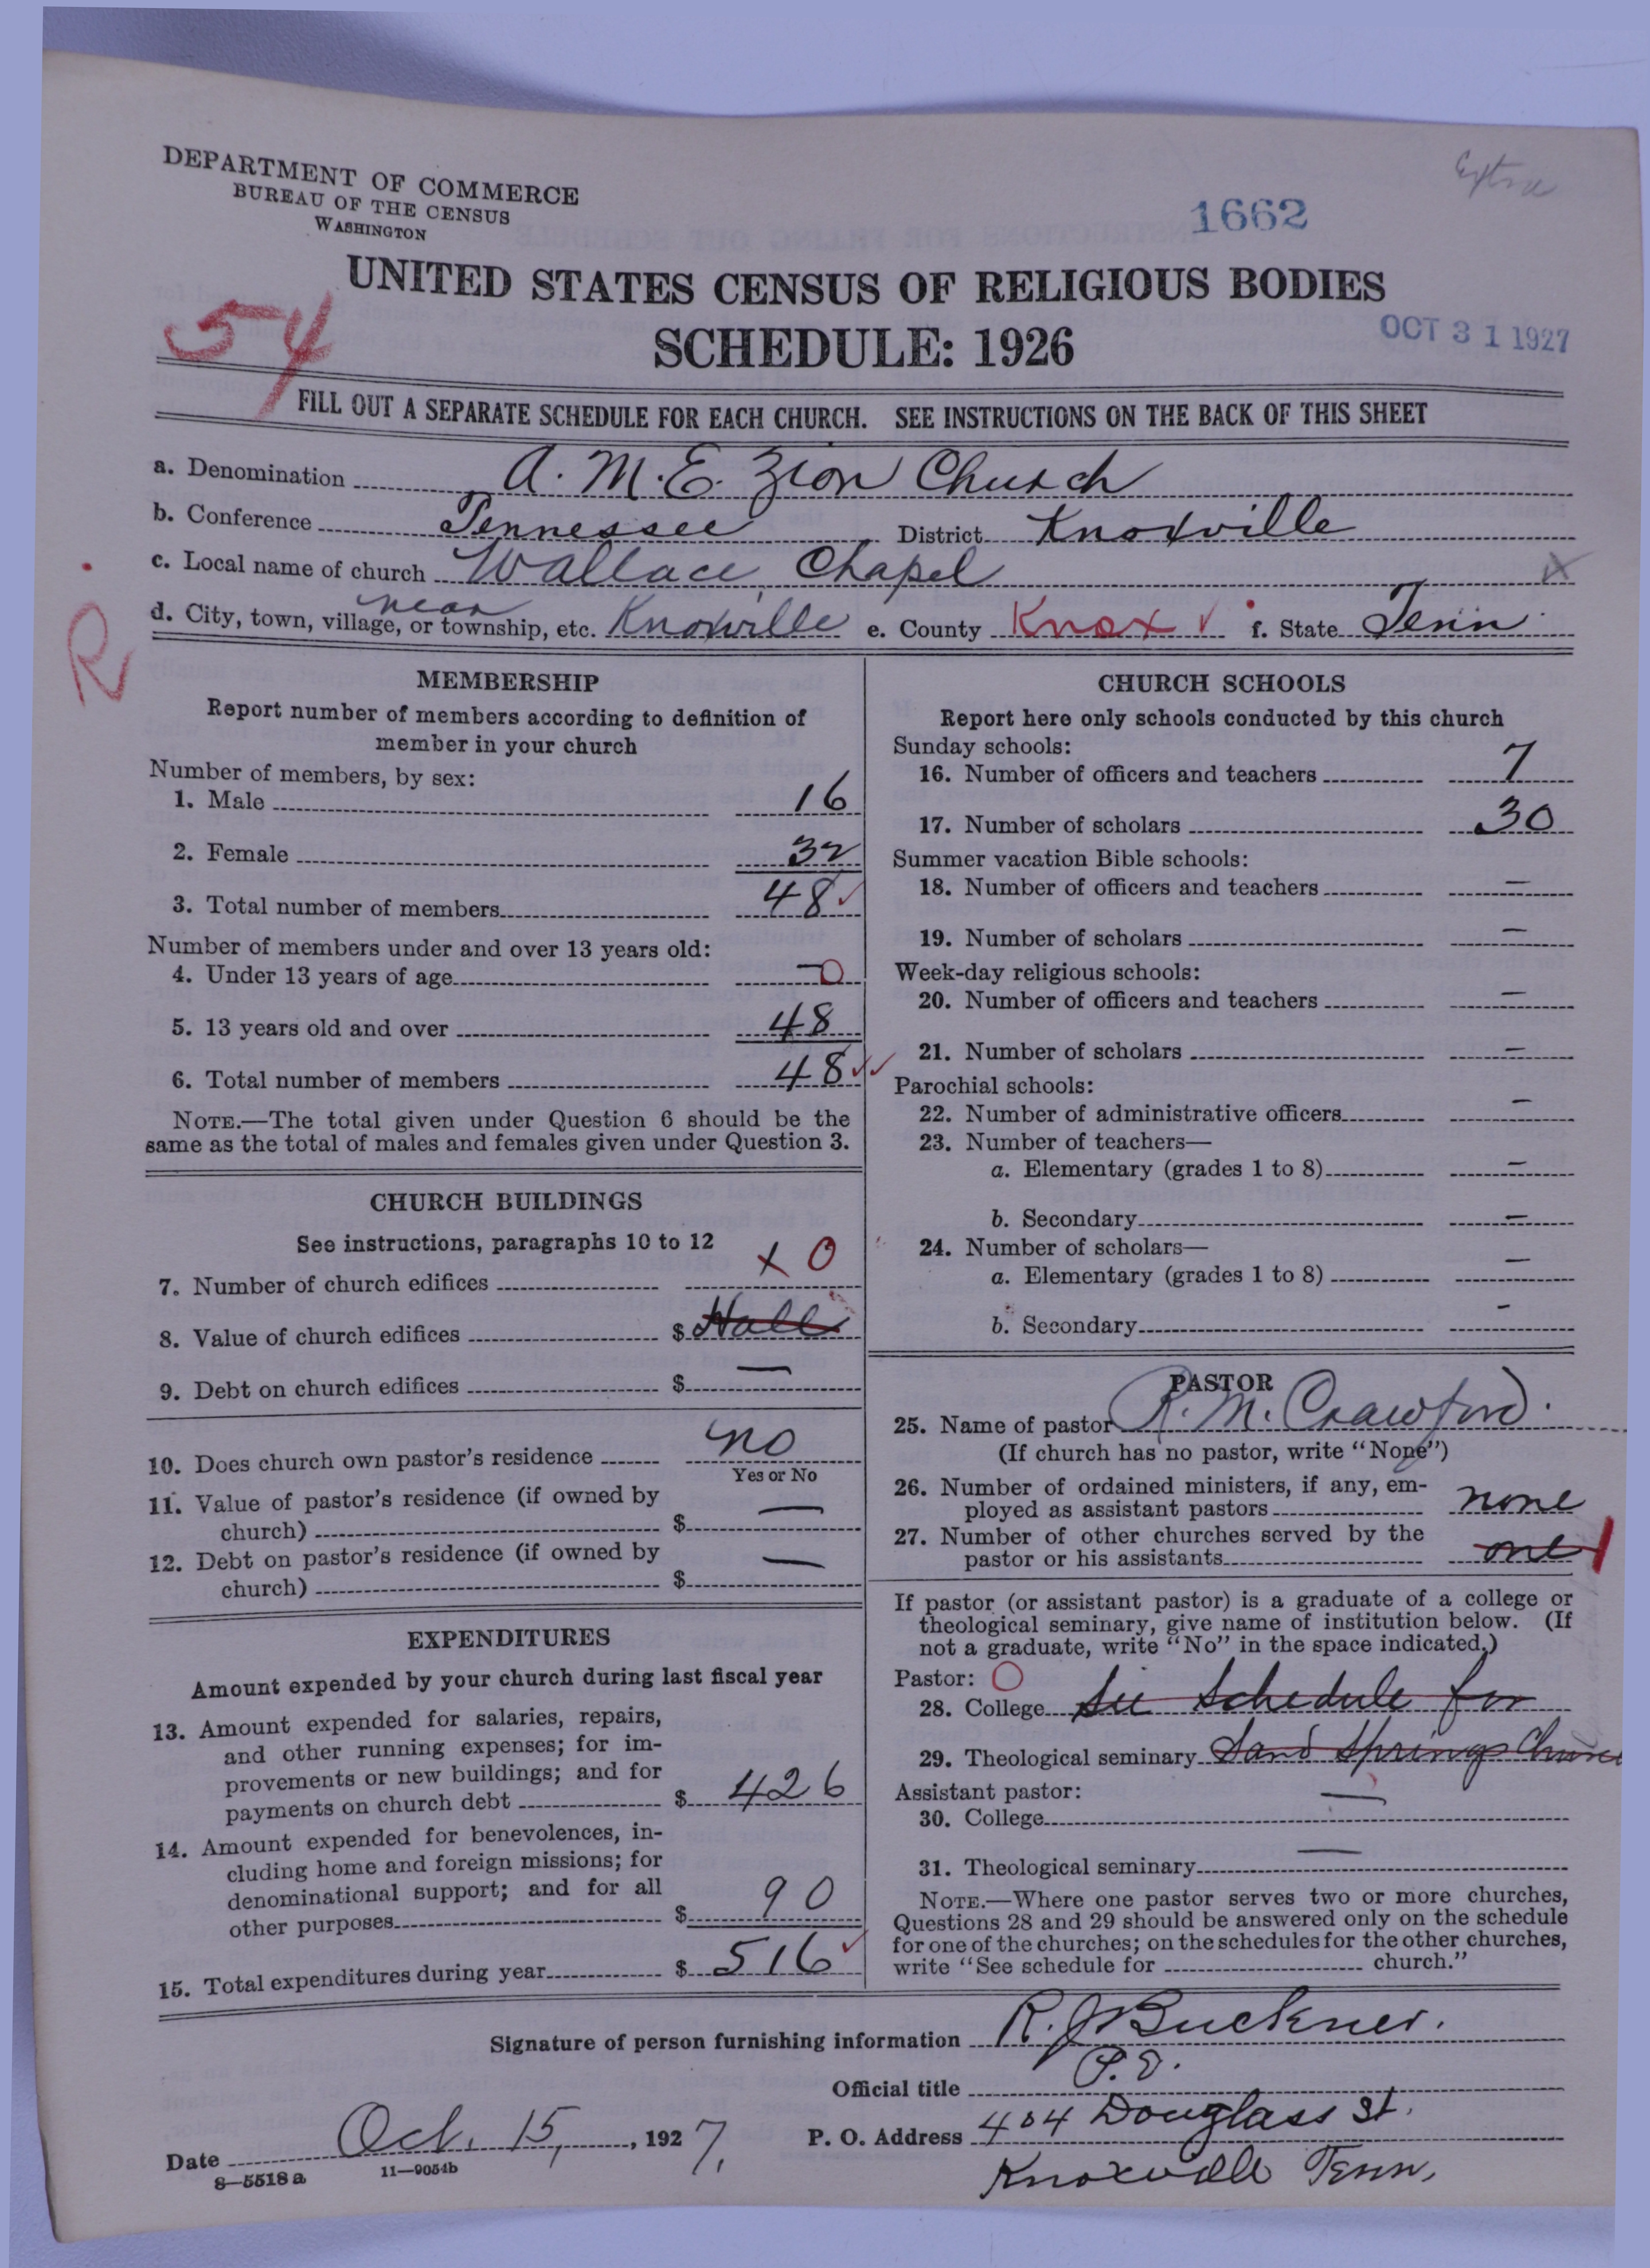 Extra
DEPARTMENT OF COMMERCE
BUREAU OF THE CENSUS
WASHINGTON
1662
UNITED STATES CENSUS OF RELIGIOUS BODIES
54
SCHEDULE: 1926
OCT 31 1927
FILL OUT A SEPARATE SCHEDULE FOR EACH CHURCH. SEE INSTRUCTIONS ON THE BACK OF THIS SHEET
a. Denomination A. M. E. Zion Church
b. Conference Tennessee District Knoxville
c. Local name of church Wallace Chapel x
d. City, town, village, or township, etc. near Knoxville e. County Knox ✓ f. State Tenn.
R
MEMBERSHIP
Report number of members according to definition of
member in your church
Number of members, by sex:
1. Male 16
2. Female 32
3. Total number of members 48 ✓
Number of members under and over 13 years old:
4. Under 13 years of age — 0
5. 13 years old and over 48
6. Total number of members 48 ✓✓
NOTE.—The total given under Question 6 should be the
same as the total of males and females given under Question 3.
CHURCH BUILDINGS
See instructions, paragraphs 10 to 12
7. Number of church edifices x 0
8. Value of church edifices $ Hall
9. Debt on church edifices $ —
10. Does church own pastor's residence no
Yes or No
11. Value of pastor's residence (if owned by
church) $ —
12. Debt on pastor's residence (if owned by
church) $ —
EXPENDITURES
Amount expended by your church during last fiscal year
13. Amount expended for salaries, repairs,
and other running expenses; for im-
provements or new buildings; and for
payments on church debt $ 426
14. Amount expended for benevolences, in-
cluding home and foreign missions; for
denominational support; and for all
other purposes $ 90
15. Total expenditures during year $ 516 ✓
CHURCH SCHOOLS
Report here only schools conducted by this church
Sunday schools:
16. Number of officers and teachers 7
17. Number of scholars 30
Summer vacation Bible schools:
18. Number of officers and teachers —
19. Number of scholars —
Week-day religious schools:
20. Number of officers and teachers —
21. Number of scholars —
Parochial schools:
22. Number of administrative officers —
23. Number of teachers—
a. Elementary (grades 1 to 8) —
b. Secondary —
24. Number of scholars—
a. Elementary (grades 1 to 8) —
b. Secondary -
PASTOR
25. Name of pastor R. M. Crawford.
(If church has no pastor, write "None")
26. Number of ordained ministers, if any, em-
ployed as assistant pastors none
27. Number of other churches served by the
pastor or his assistants one 1
If pastor (or assistant pastor) is a graduate of a college or
theological seminary, give name of institution below. (If
not a graduate, write "No" in the space indicated.)
Pastor: O
28. College See Schedule for
29. Theological seminary Sand Springs Church
Assistant pastor:
30. College —
31. Theological seminary —
NOTE.—Where one pastor serves two or more churches,
Questions 28 and 29 should be answered only on the schedule
for one of the churches; on the schedules for the other churches,
write "See schedule for church."
Signature of person furnishing information R. J. Buckner.
Official title P. E.
Date Oct. 15, 1927. P. O. Address 404 Douglass St.
Knoxville Tenn.
8—5518 a 11—9054b